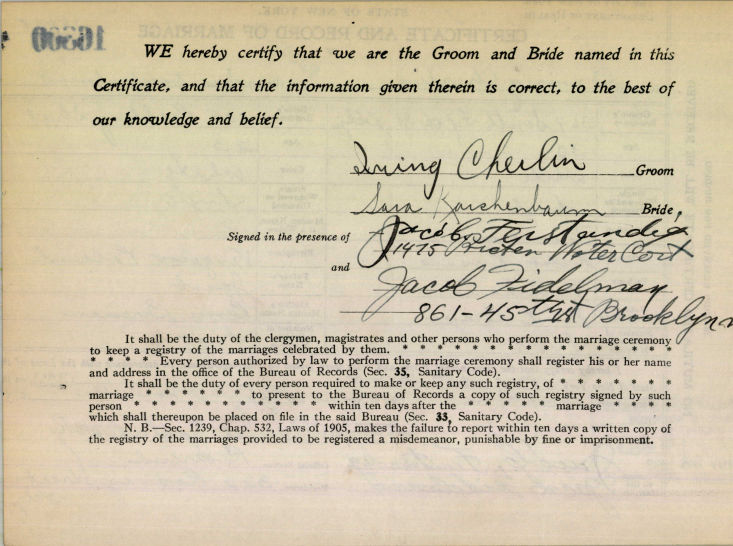 WE hereby certify that we are the Groom and Bride named in this
Certificate, and that the information given therein is correct, to the best of
our knowledge and belief.
Irving Cherlin Groom
Sara Karchenbaum Bride,
Signed in the presence of Jacob
1475
and
Jacob Fidelman
861-45th St Brooklyn
It shall be the duty of the clergymen, magistrates and other persons who perform the marriage ceremony
to keep a registry of the marriages celebrated by them. * * * * * * * * * * * * * * *
* * * * Every person authorized by law to perform the marriage ceremony shall register his or her name
and address in the office of the Bureau of Records (Sec. 35, Sanitary Code).
It shall be the duty of every person required to make or keep any such registry, of * * * * * *
marriage * * * * * * to present to the Bureau of Records a copy of such registry signed by such
person * * * * * * * * * * * within ten days after the * * * * * marriage * * * *
which shall thereupon be placed on file in the said Bureau (Sec. 33, Sanitary Code).
N. B.—Sec. 1239, Chap. 532, Laws of 1905, makes the failure to report within ten days a written copy of
the registry of the marriages provided to be registered a misdemeanor, punishable by fine or imprisonment.